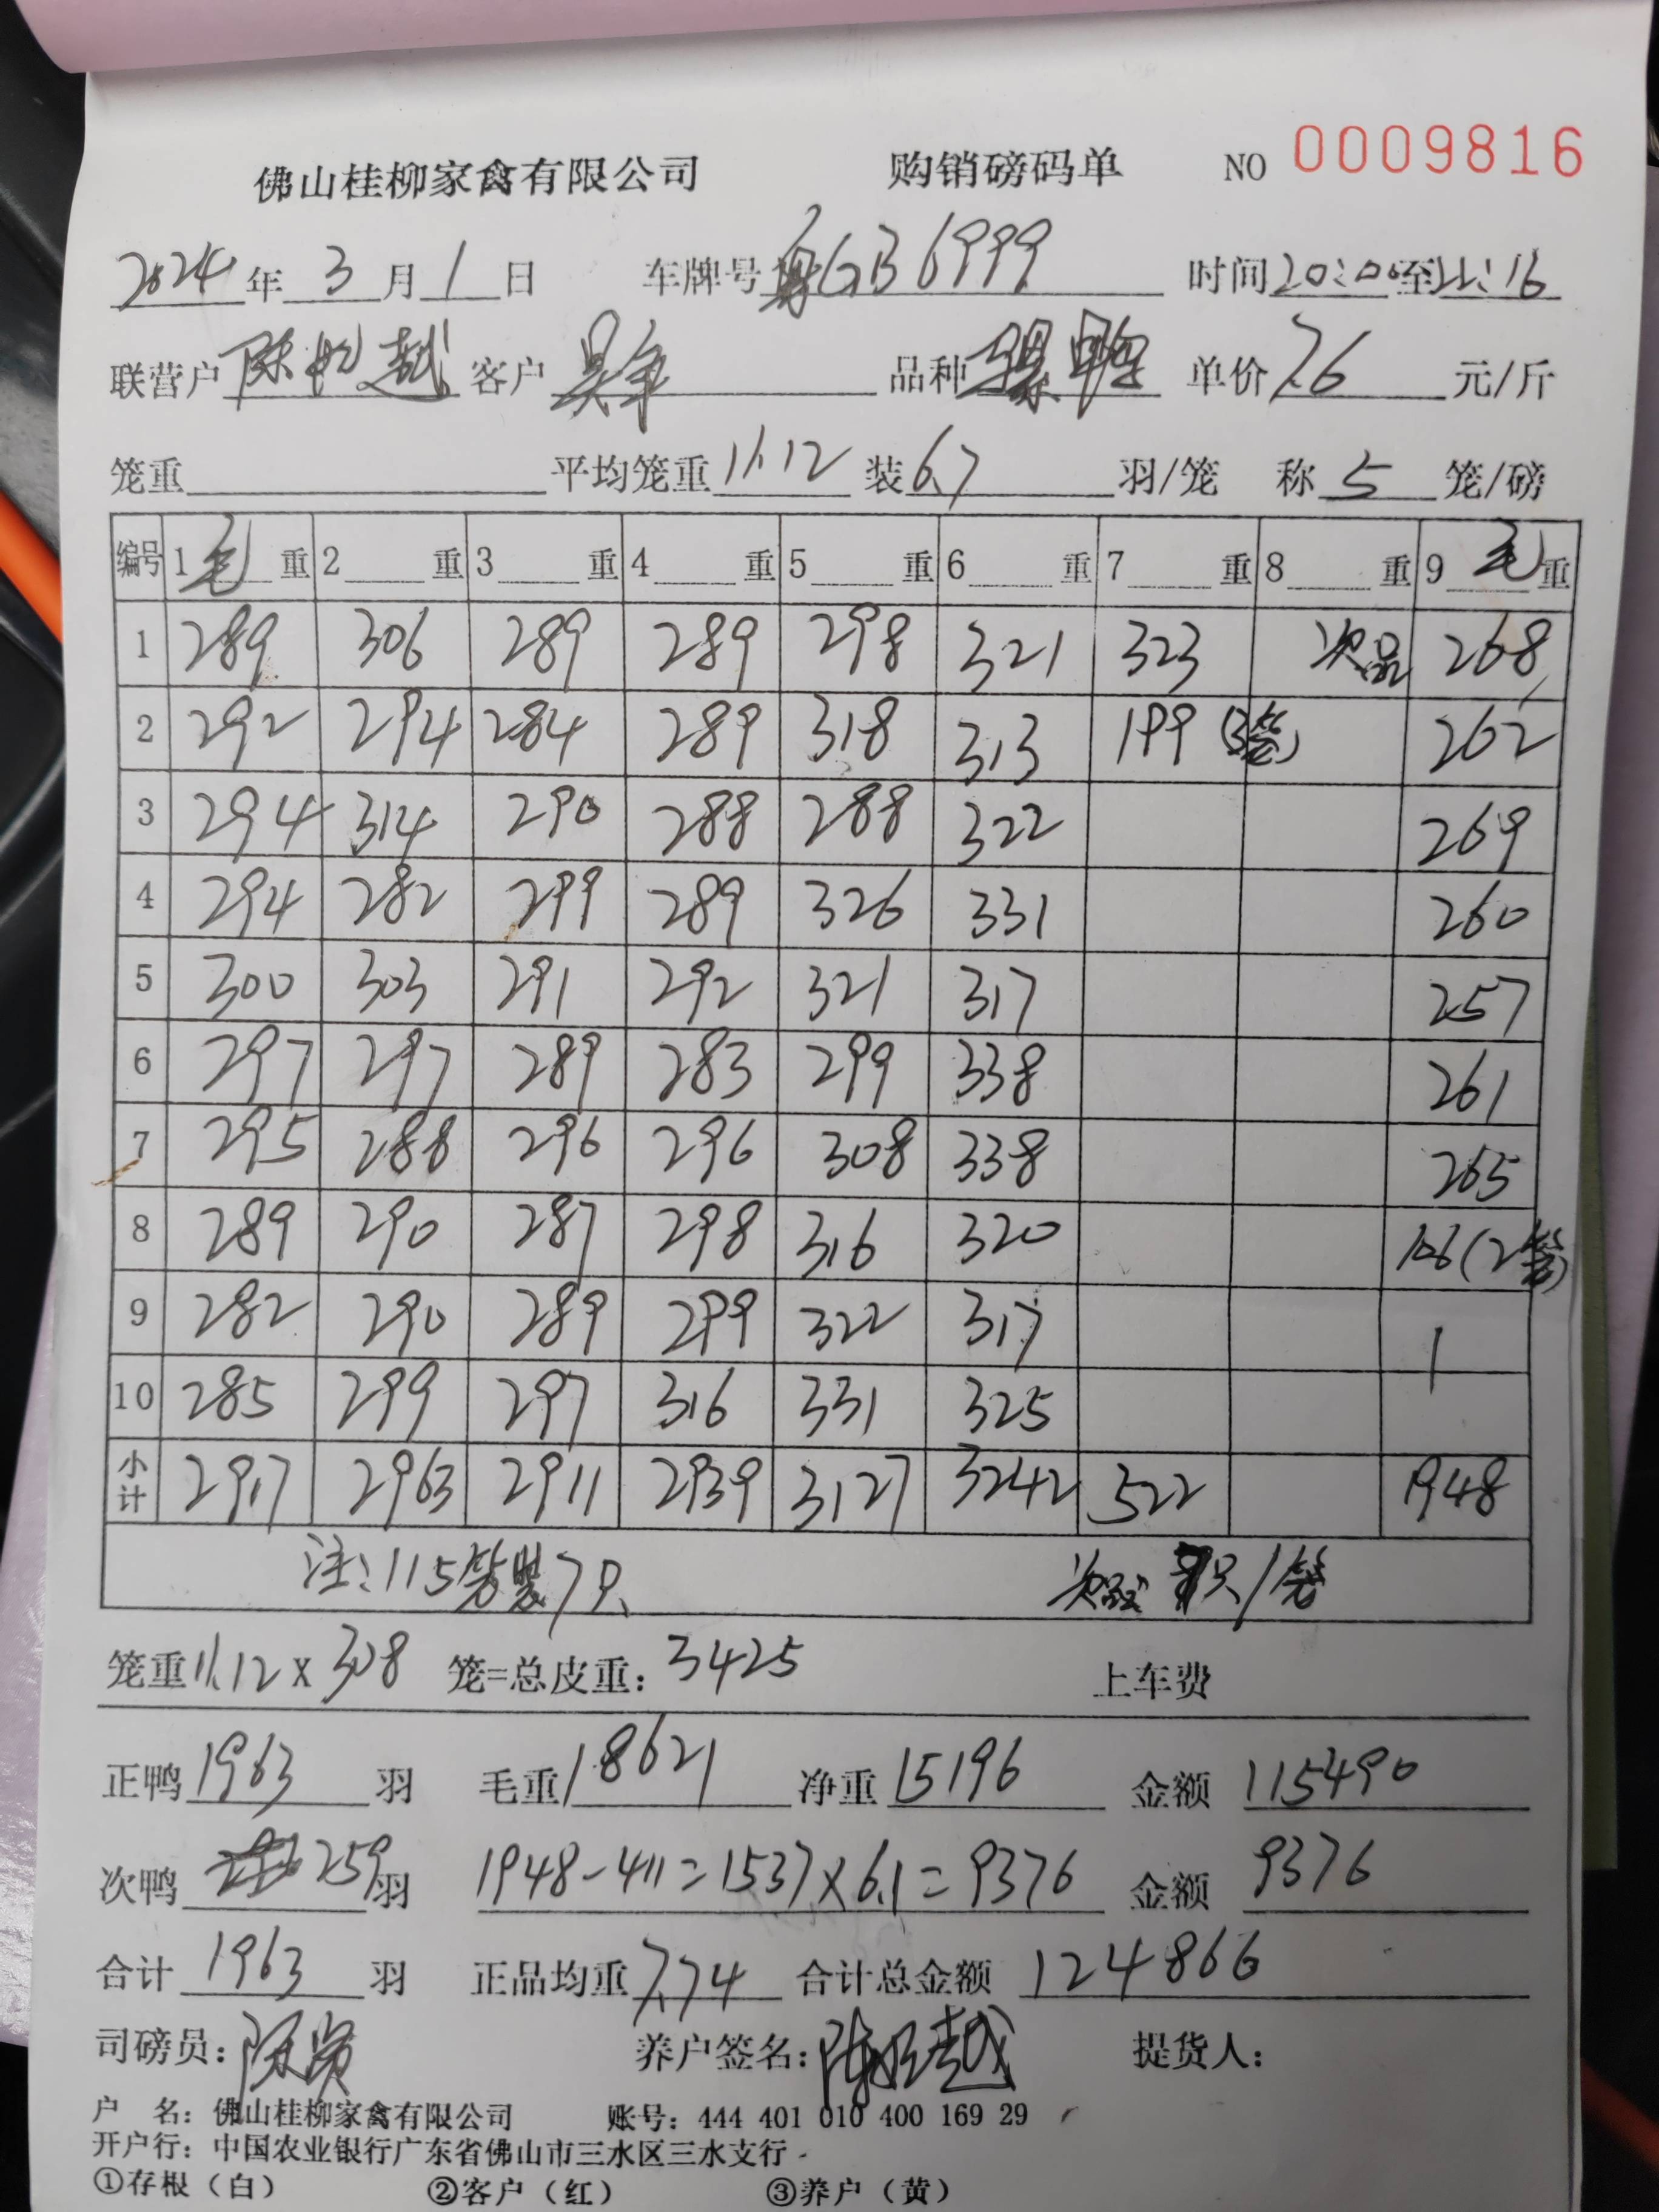 佛山桂柳家禽有限公司 购销磅码单 NO 0009816
2024年3月1日 车牌号粤GB6999 时间20:00至22:16
联营户 陈 越 客户 吴年 品种 骡鸭 单价7.6元/斤
笼重 平均笼重11.12 装6.7羽/笼 称5笼/磅
编号 1毛重 2重 3重 4重 5重 6重 7重 8重 9毛重
1 289 306 289 289 298 321 323 次品 268
2 292 294 284 289 318 313 199 (3笼) 262
3 294 314 290 288 288 322 269
4 294 282 299 289 326 331 260
5 300 303 291 292 321 317 257
6 297 297 289 283 299 338 261
7 295 288 296 296 308 338 265
8 289 290 287 298 316 320 106(2笼)
9 282 290 289 299 322 317
10 285 299 297 316 331 325
小计 2917 2963 2911 2939 3127 3242 522 1948
注:115笼装7只 次品 7只/笼
笼重11.12×308 笼=总皮重:3425 上车费
正鸭1963羽 毛重18621 净重15196 金额115490
次鸭259羽 1948-411=1537×6.1=9376 金额9376
合计1963羽 正品均重7.74 合计总金额124866
司磅员: 养户签名:陈 越 提货人:
户 名:佛山桂柳家禽有限公司 账号:444 401 010 400 169 29
开户行:中国农业银行广东省佛山市三水区三水支行
①存根(白) ②客户(红) ③养户(黄)